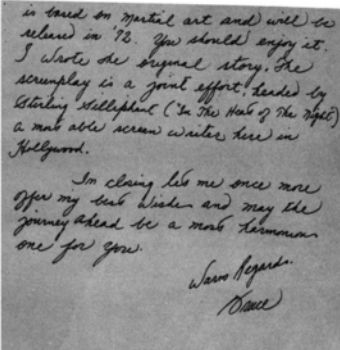 is based on martial art and will be
released in '72. You should enjoy it.
I wrote the original story, the
screenplay is a joint effort, headed by
Sterling Silliphant ('In The Heat of The Night)
a most able screen writer here in
Hollywood.
In closing let me once more
offer my best wishes and may the
journey ahead be a most harmonious
one for you.
Warm Regards.
Bruce